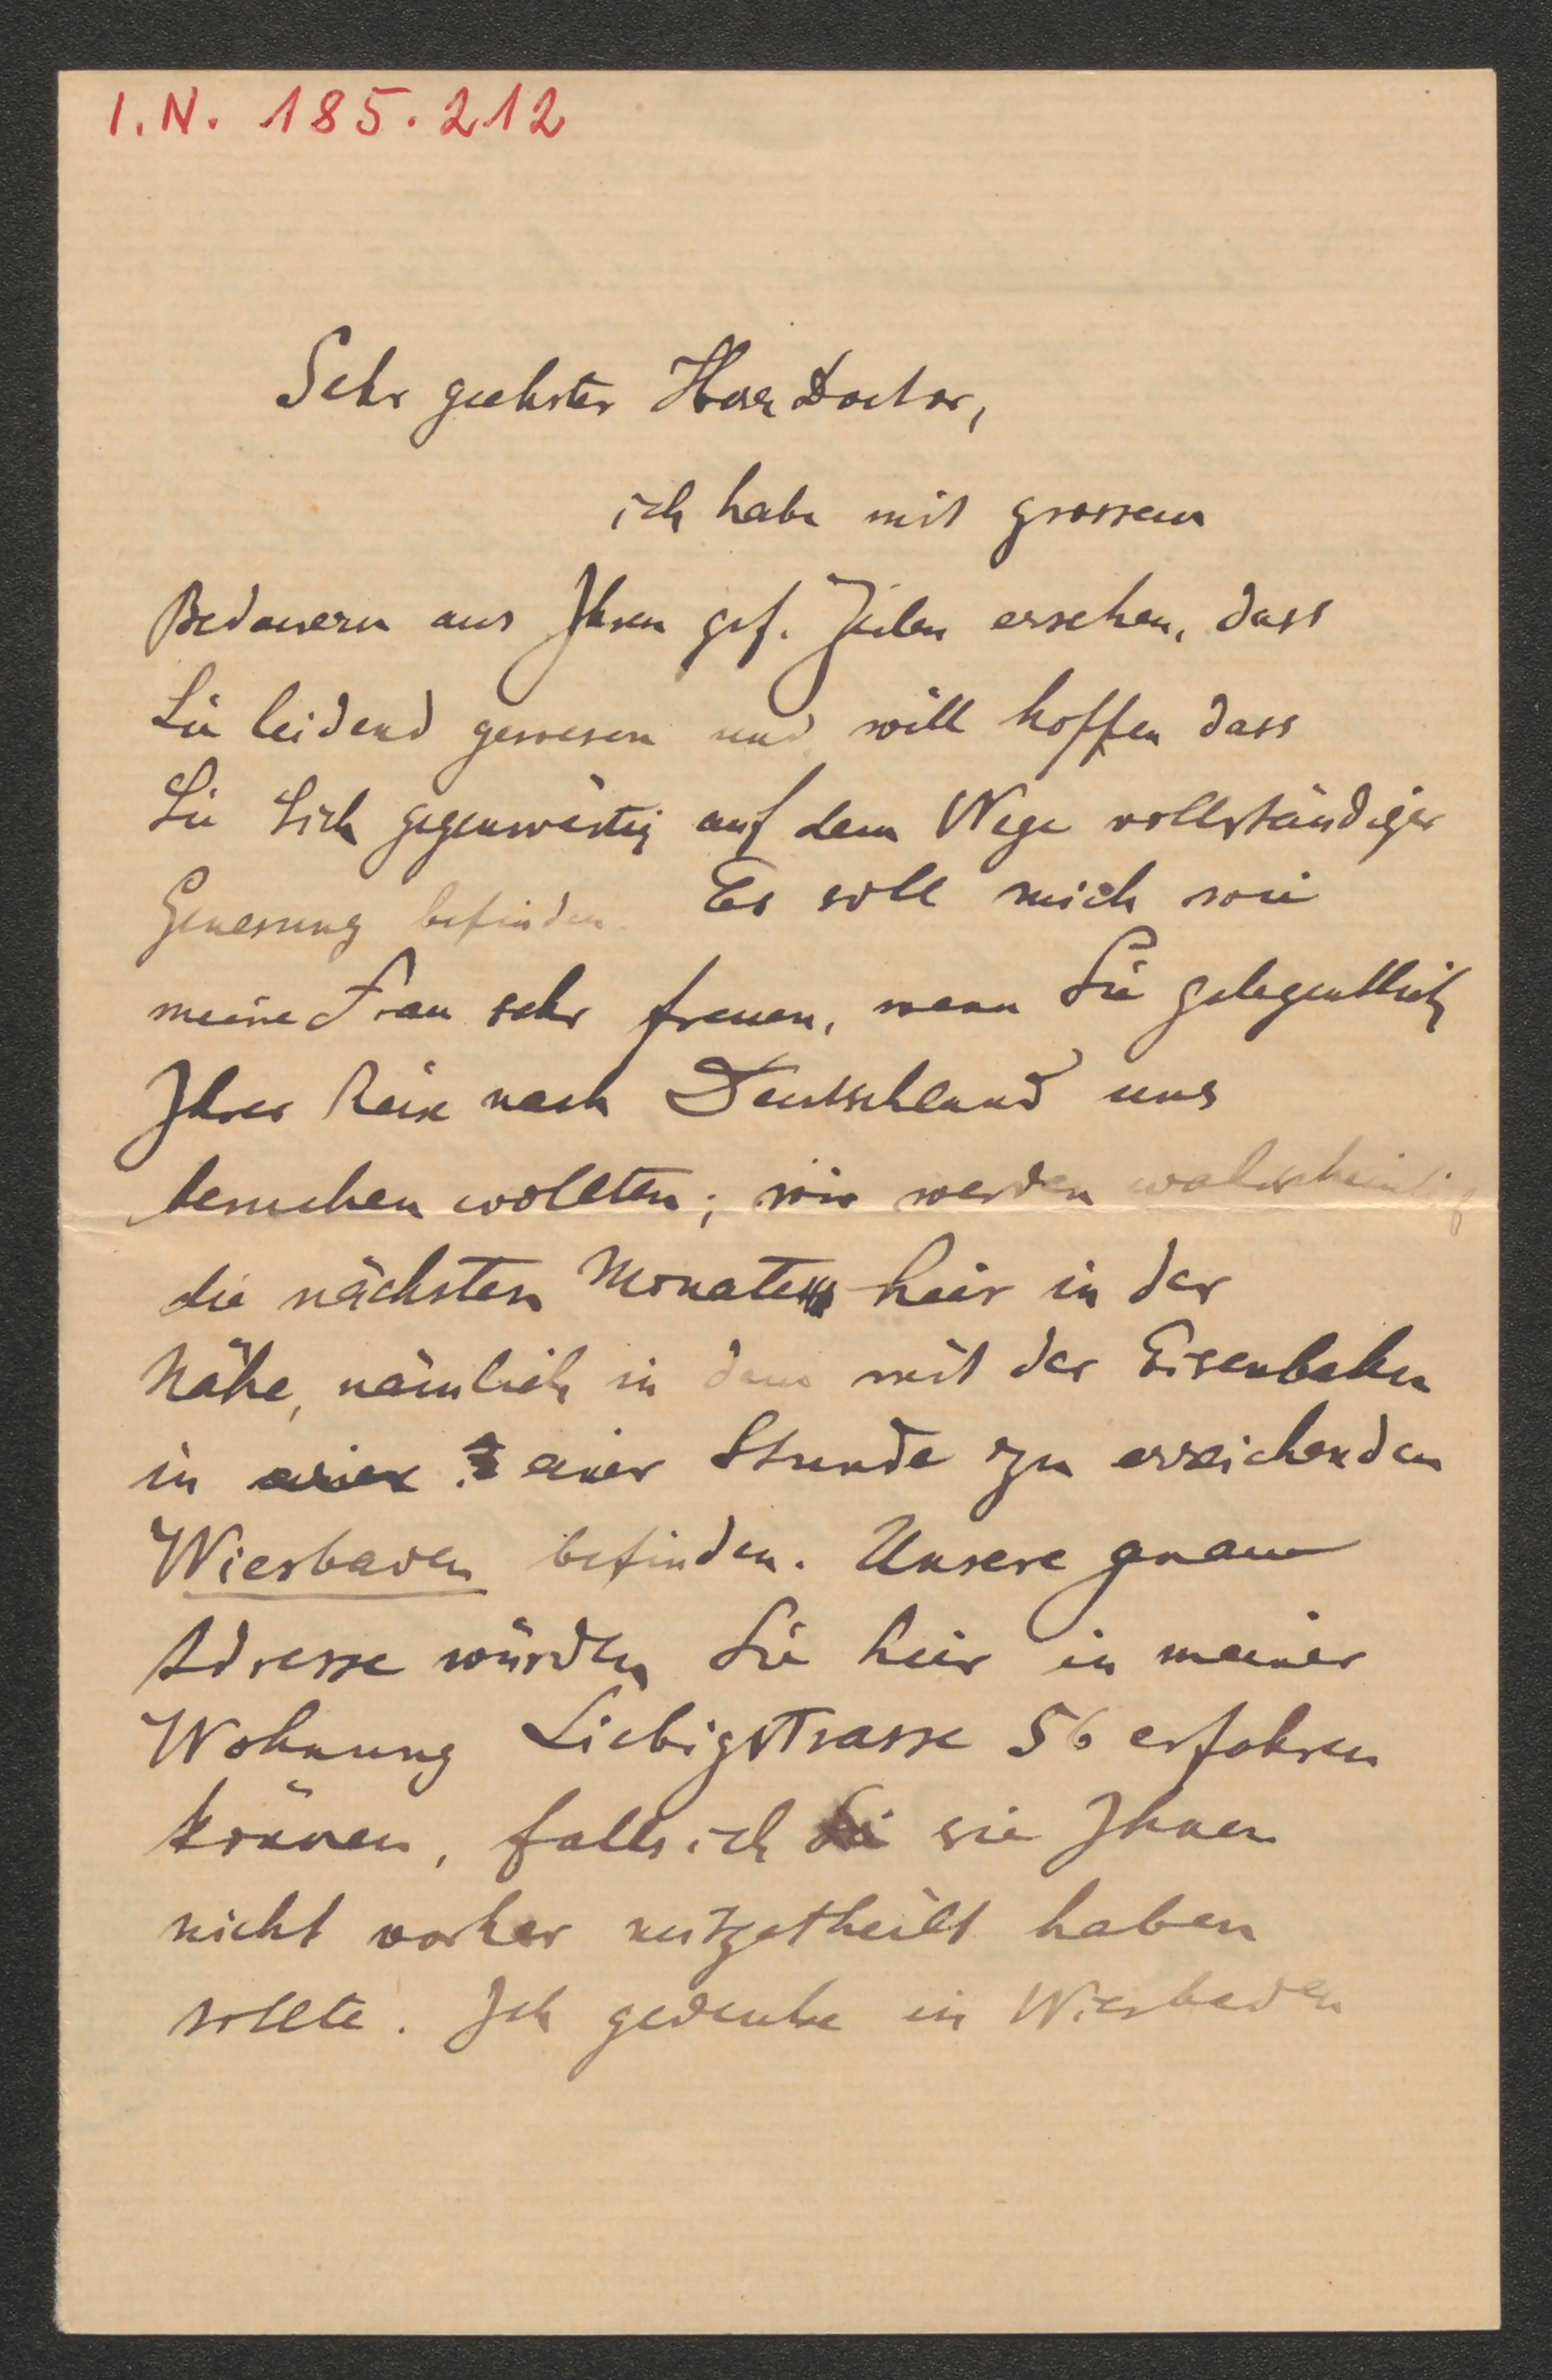 I.N. 185.212
Sehr geehrter Herr Doctor,
ich habe mit grossem
Bedauern aus Ihren gef. Zeilen ersehen, dass
Sie leidend gewesen und will hoffen dass
Sie Sich gegenwärtig auf dem Wege vollständiger
Genesung befinden. Es soll mich wie
meine Frau sehr freuen, wenn Sie gelegentlich
Ihrer Reise nach Deutschland uns
besuchen wollten; wir werden wahrscheinlich
die nächsten Monate hier in der
Nähe, nämlich in dem mit der Eisenbahn
in einer einer Stunde zu erreichenden
Wiesbaden befinden. Unsere genaue
Adresse würden Sie hier in meiner
Wohnung Liebigstrasse 56 erfahren
können, falls ich sie Ihnen
nicht vorher mitgetheilt haben
sollte. Ich gedenke in Wiesbaden